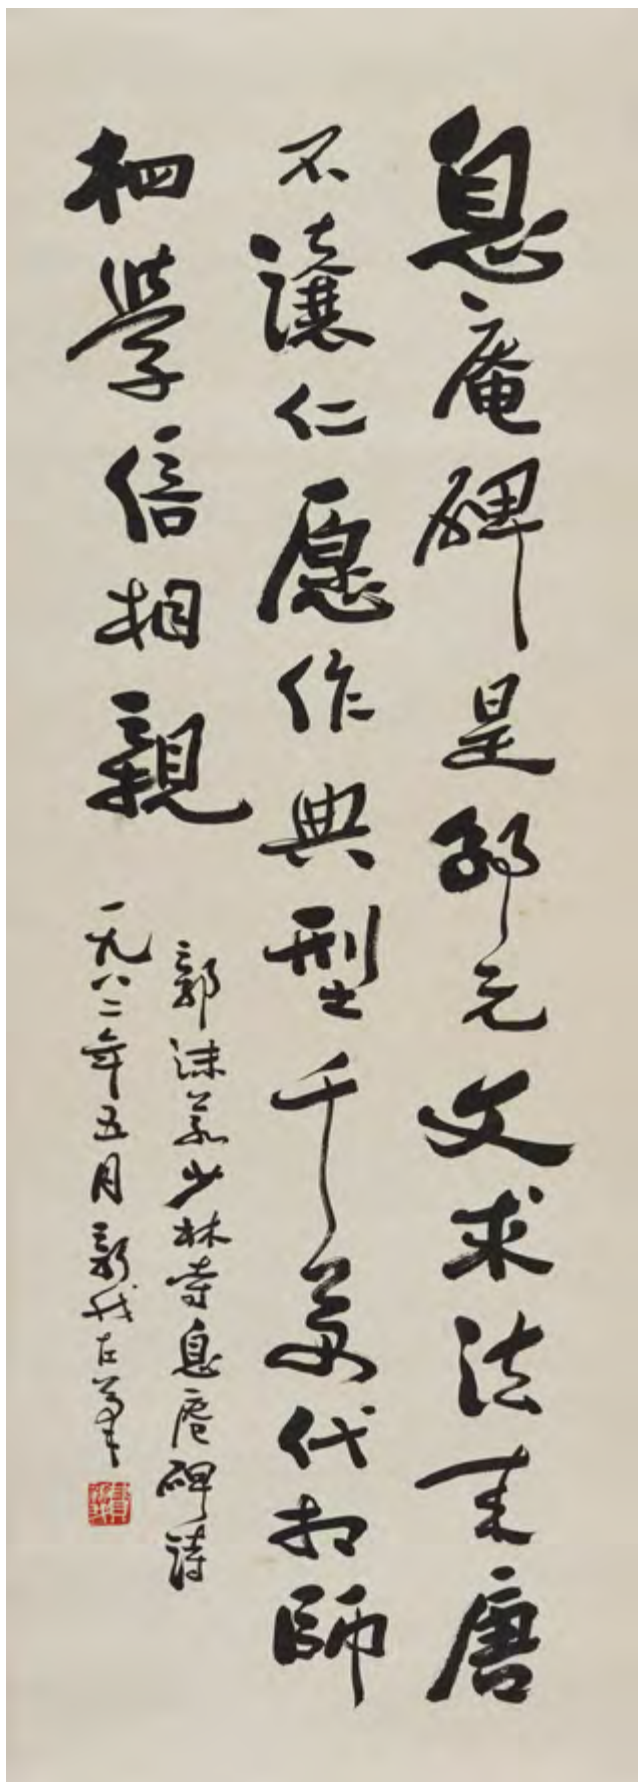 息庵碑是邵元文求法来唐
不讓仁愿作典型千萬代相師
相學倍相親
郭沫若少林寺息庵碑詩
一九八二年五月新我左筆